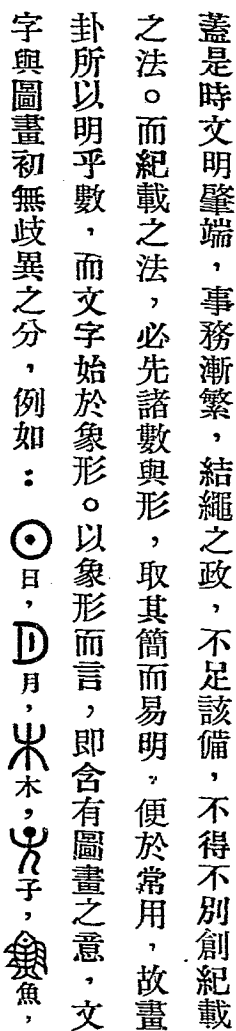 蓋是時文明肇端，事務漸繁，結繩之政，不足該備，不得不別創紀載
之法。而紀載之法，必先諸數與形，取其簡而易明，便於常用，故畫
卦所以明乎數，而文字始於象形。以象形而言，即含有圖畫之意，文
字與圖畫初無歧異之分，例如：日，月，木，子，魚，